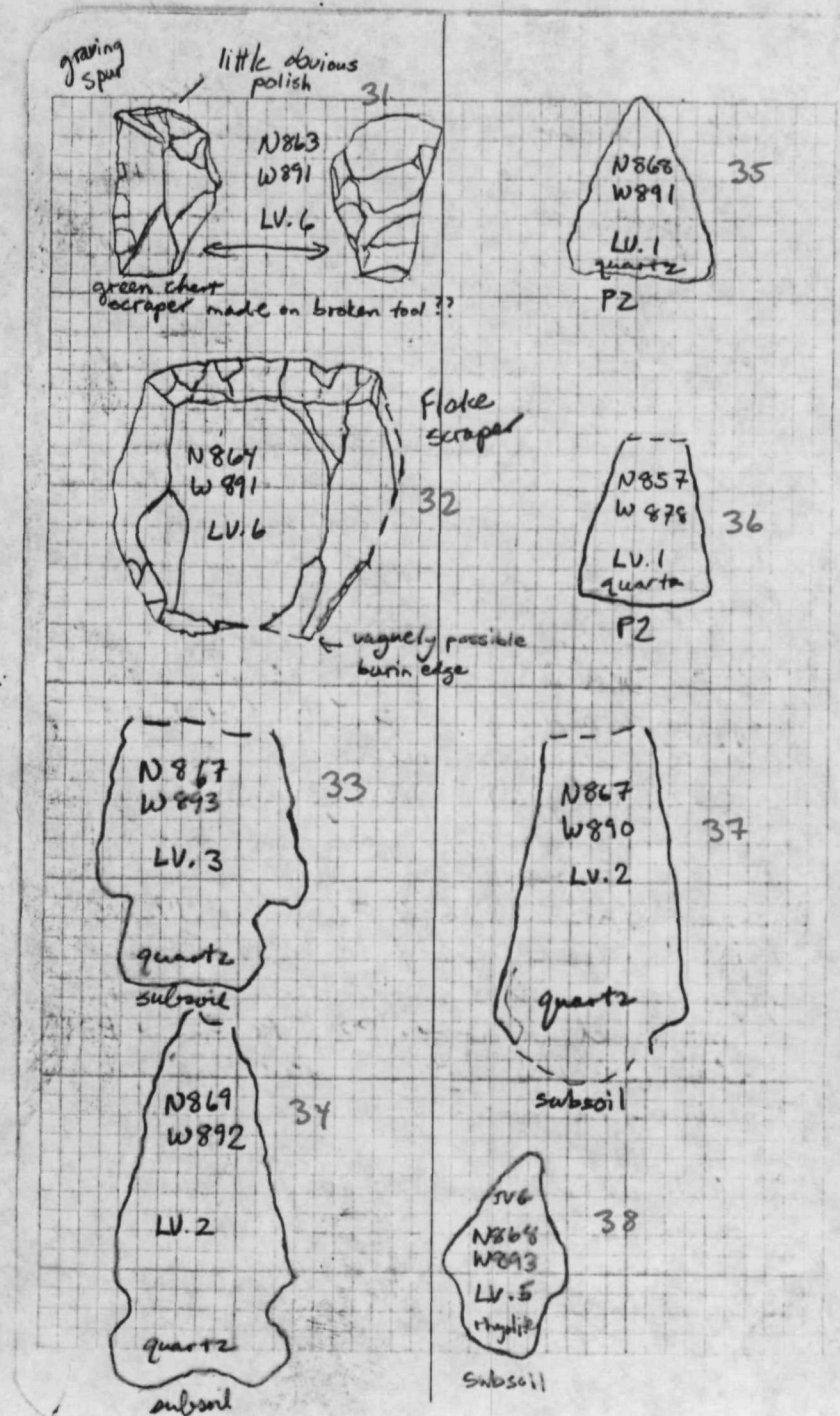 graving
spur
little obvious
polish
31
N863
W891
LV.6
green chert
scraper made on broken tool ??
N864
W891
LV.6
Flake
scraper
32
vaguely possible
burin edge
N867
W893
LV.3
quartz
subsoil
33
N869
W892
LV.2
quartz
subsoil
34
N868
W891
LV.1
quartz
P2
35
N857
W878
LV.1
quartz
P2
36
N867
W890
LV.2
quartz
subsoil
37
N868
W893
LV.5
rhyolite
subsoil
38